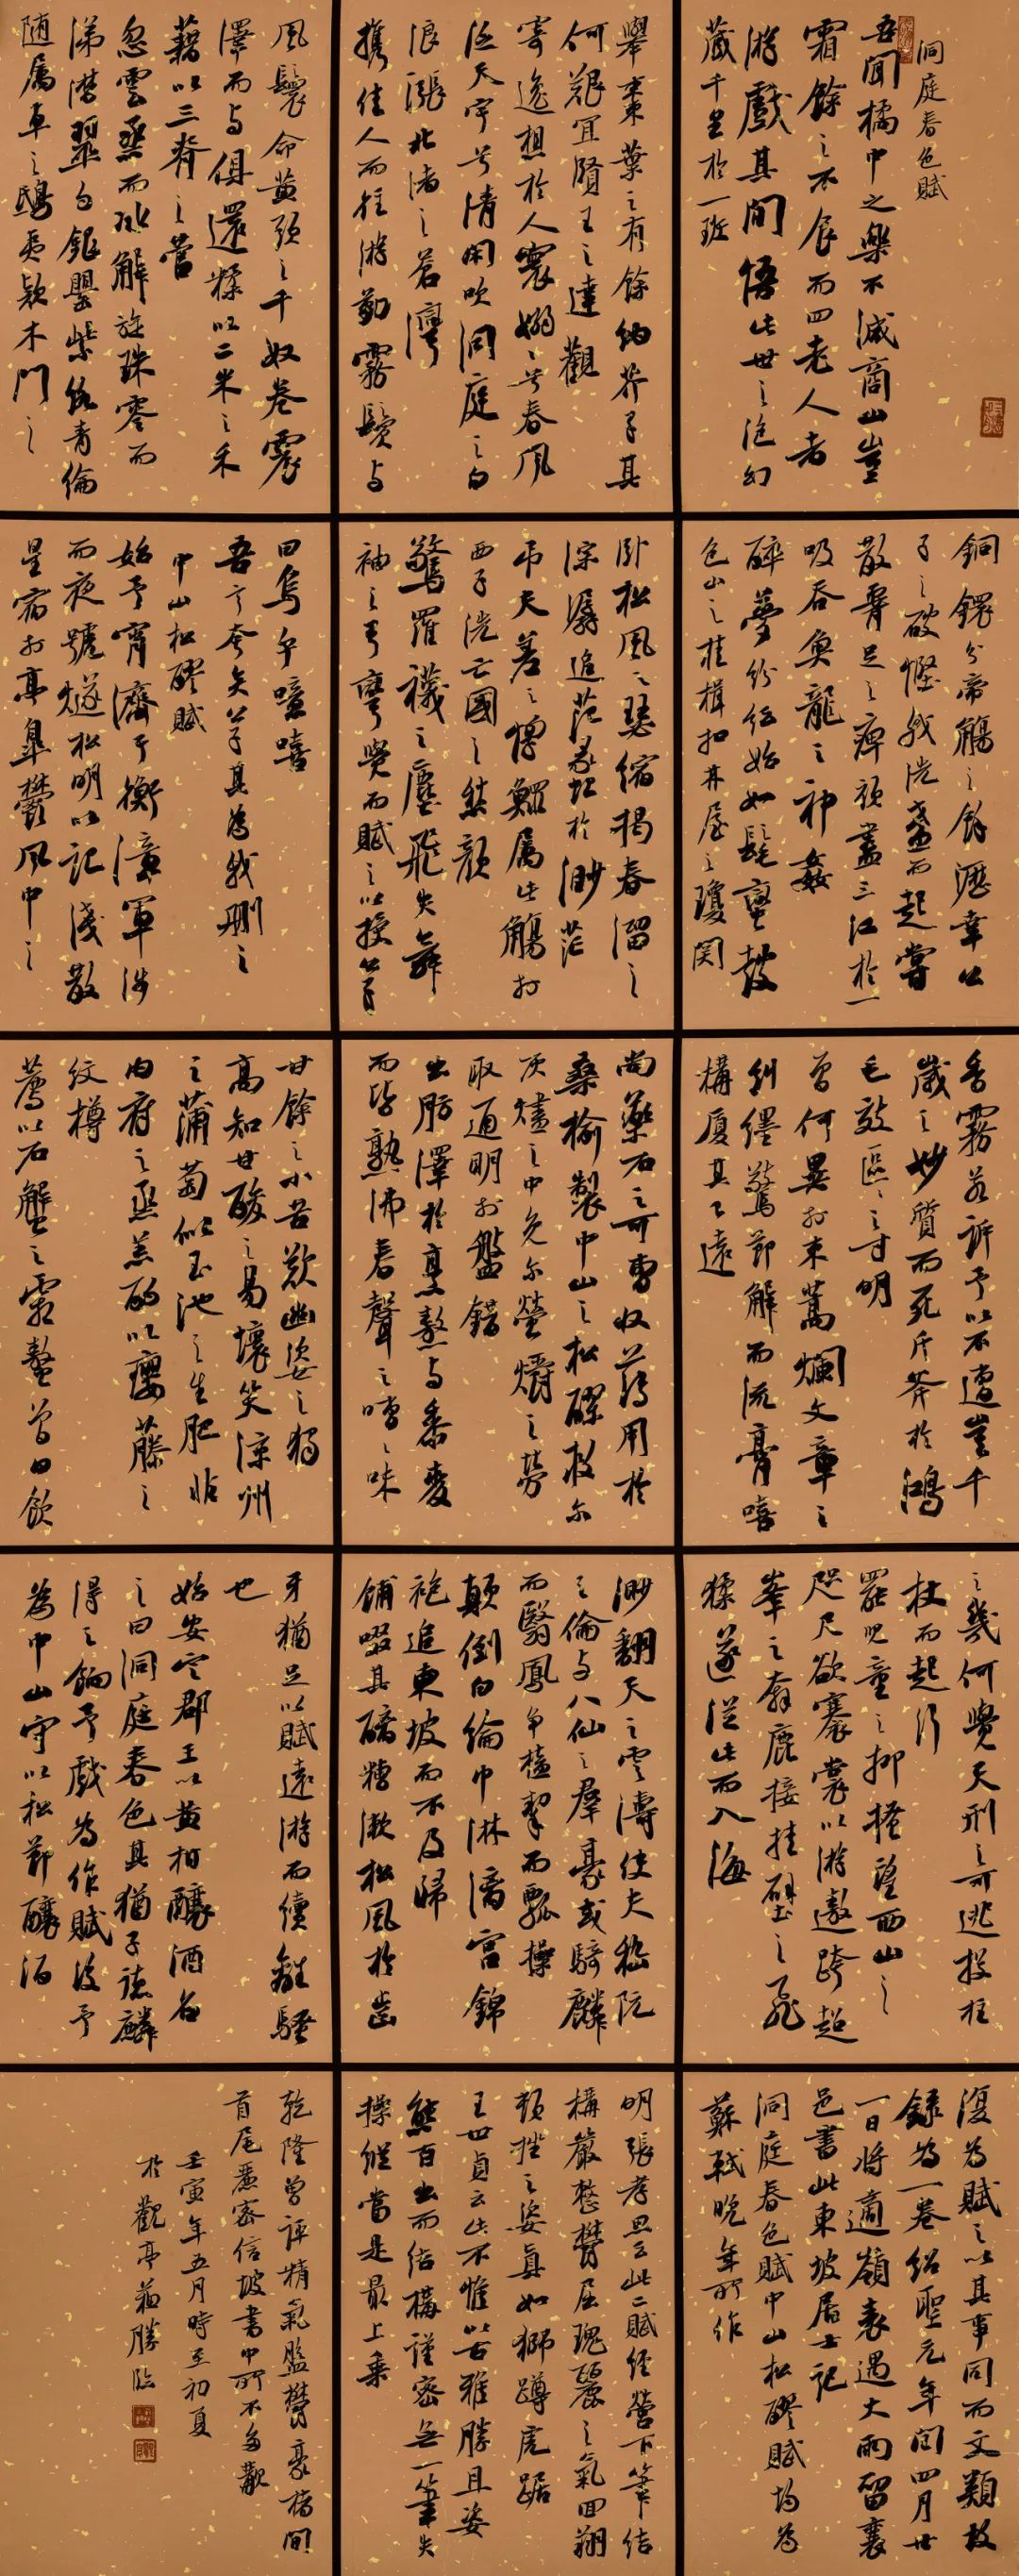 洞庭春色賦
吾聞橘中之樂不減商山豈
霜餘之不食而四老人者
游戲其間悟此世之泡幻
藏千里於一班
舉棗葉之有餘納芥子其
何艱宜賢王之達觀
寄逸想於人寰嫋嫋兮春風
泛天宇兮清閑吹洞庭之白
浪漲北渚之蒼灣
攜佳人而往游勒霧鬢與
風鬟命黃頭之千奴卷震
澤而與俱還糅以二米之禾
藉以三脊之菅
忽雲烝而冰解旋珠零而
涕潸翠勺銀罌紫絡青倫
随属車之鴟夷款木門之
銅鐶分帝觴之餘瀝幸公
子之破慳我洗盞而起嘗
散腰足之痺頑盡三江於一
吸吞魚龍之神姦
醉夢紛紜始如髦蠻鼓
包山之桂楫扣林屋之瓊關
卧松風之瑟縮揭春溜之
淙潺追范蠡於渺茫
吊夫差之惸鰥属此觴於
西子洗亡國之愁顏
驚羅襪之塵飛失舞
袖之弓彎覺而賦之以授公子
曰烏乎噫嘻
吾言夸矣公子其為我刪之
中山松醪賦
始予宵濟于衡漳軍涉
而夜號燧松明以記淺散
星宿於亭皋鬱風中之
香霧若訴予以不遭豈千
歲之妙質而死斤斧於鴻
毛效區區之寸明
曾何異於束蒿爛文章之
糾纆驚節解而流膏嘻
構廈其已遠
尚藥石之可曹收薄用於
桑榆製中山之松醪救尔
灰燼之中免尔螢爝之勞
取通明於盤錯
出肪澤於烹熬與黍麥
而皆熟沸舂聲之嘈嘈味
甘餘之小苦歎幽姿之獨
高知甘酸之易壞笑涼州
之蒲萄似玉池之生肥非
内府之烝羔酌以癭藤之
紋樽
薦以石蟹之霜螯曾日飲
之幾何覺天刑之可逃投拄
杖而起行
罷兒童之抑搔望西山之
咫尺欲褰裳以游遨跨超
峯之奔鹿接挂壁之飛
猱遂從此而入海
渺翻天之雲濤使夫嵇阮
之倫與八仙之羣豪或騎麟
而翳鳳争榼挈而瓢操
顛倒白綸巾淋漓宮錦
袍追東坡而不及歸
餔歠其醨糟漱松風於齒
牙猶足以賦遠游而續離騷
也
始安定郡王以黃柑釀酒名
之曰洞庭春色其猶子德麟
得之餉予戲為作賦後予
為中山守以松節釀酒
復為賦之以其事同而文類故
錄為一卷紹聖元年閏四月廿
一日將適嶺表遇大雨留襄
邑書此東坡居士記
洞庭春色賦中山松醪賦均為
蘇軾晚年所作
明張孝思云此二賦經營下筆結
構嚴整鬱屈瑰麗之氣回翔
頓挫之姿真如獅蹲虎踞
王世貞云此不惟以古雅勝且姿
態百出而結構謹密無一筆失
操縱當是最上乘
乾隆曾評精氣盤鬱豪楮間
首尾麗密信坡書中所不多觀
壬寅年五月時至初夏
於觀亭 勝臨